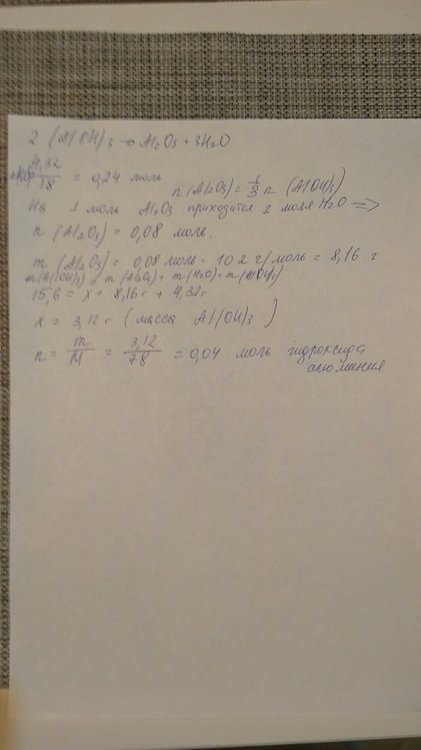 2 (Al(OH)3 → Al2O3 + 3H2O
4,32/18 = 0,24 моль
n (Al2O3) = 1/3 n (Al(OH)3)
На 1 моль Al2O3 приходится 3 моля H2O ⇒
n (Al2O3) = 0,08 моль.
m (Al2O3) = 0,08 моль · 102 г/моль = 8,16 г
m(Al(OH)3) = m (Al2O3) + m (H2O) + m (Al(OH)3)
15,6 = x + 8,16г + 4,32г
x = 3,12 г (масса Al(OH)3)
n = m/M = 3,12/78 = 0,04 моль гидроксида
алюминия